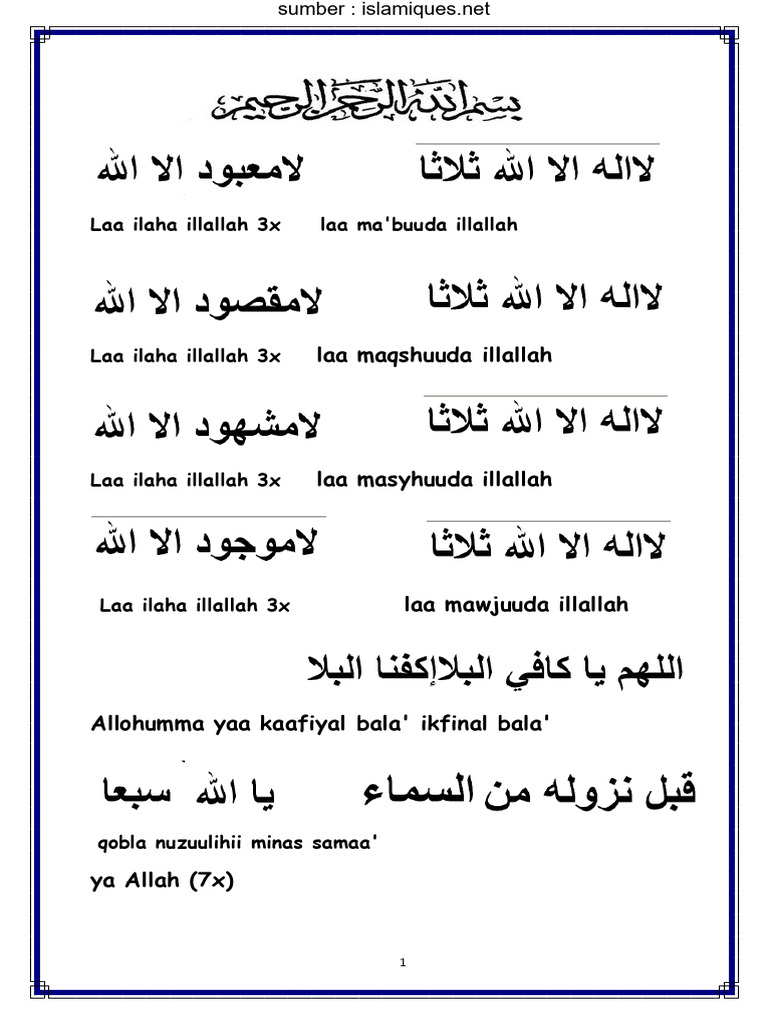 sumber : islamiques.net
بسم الله الرحمن الرحيم
لااله الا الله ثلاثا لامعبود الا الله
Laa ilaha illallah 3x laa ma'buuda illallah
لااله الا الله ثلاثا لامقصود الا الله
Laa ilaha illallah 3x laa maqshuuda illallah
لااله الا الله ثلاثا لامشهود الا الله
Laa ilaha illallah 3x laa masyhuuda illallah
لااله الا الله ثلاثا لاموجود الا الله
Laa ilaha illallah 3x laa mawjuuda illallah
اللهم يا كافي البلاإكفنا البلا
Allohumma yaa kaafiyal bala' ikfinal bala'
قبل نزوله من السماء يا الله سبعا
qobla nuzuulihii minas samaa'
ya Allah (7x)
1